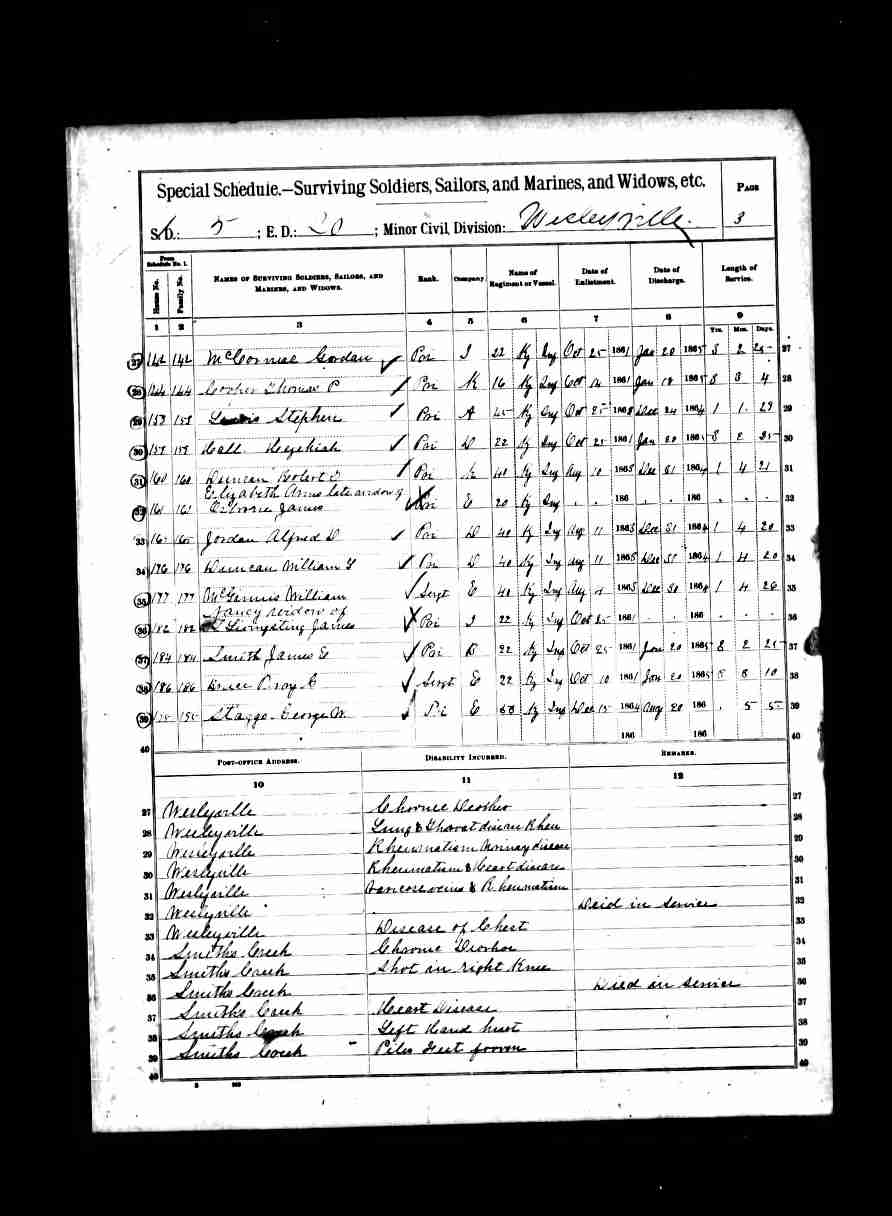 Special Schedule.—Surviving Soldiers, Sailors, and Marines, and Widows, etc.
Page 3
S. D.: 5 ; E. D.: 20 ; Minor Civil Division: Wesleyville
From Schedule No. 1.
House No. Family No. Names of Surviving Soldiers, Sailors, and Marines, and Widows. Rank. Company. Name of Regiment or Vessel. Date of Enlistment. Date of Discharge. Length of Service.
1 2 3 4 5 6 7 8 9
Yrs. Mos. Days.
27 142 142 McCormic Gordan Pri I 22 Ky Inf Oct 25 1861 Jan 20 1865 3 2 25 27
28 144 144 Cooper Thomas P Pri K 16 Ky Inf Oct 14 1861 Jan 18 1865 3 3 4 28
29 153 153 Lewis Stephen Pri A 45 Ky Inf Oct 25 1863 Dec 24 1864 1 1 29 29
30 157 157 Hall Hezekiah Pri D 22 Ky Inf Oct 25 1861 Jan 20 1865 3 2 25 30
31 160 160 Duncan Robert D Pri 40 Ky Inf Aug 10 1863 Dec 31 1864 1 4 21 31
Elizabeth Anns late widow of
32 161 161 Osborne James Pri E 20 Ky Inf 186 186 32
33 165 165 Jordan Alfred D Pri D 40 Ky Inf Aug 11 1863 Dec 31 1864 1 4 20 33
34 176 176 Duncan William Y Pri D 40 Ky Inf Aug 11 1863 Dec 31 1864 1 4 20 34
35 177 177 McGinnis William Sergt E 40 Ky Inf Aug 4 1863 Dec 30 1864 1 4 26 35
Nancy widow of
36 182 182 James Pri I 22 Ky Inf Oct 25 1861 186 36
37 184 184 Smith James E Pri D 22 Ky Inf Oct 25 1861 Jan 20 1865 3 2 25 37
38 186 186 C Sergt E 22 Ky Inf Oct 10 1861 Jan 20 1865 3 3 10 38
39 195 195 Staggs George W. Pri E Ky Inf Dec 15 1864 Aug 20 186 5 5 39
40 186 186 40
Post-Office Address. Disability Incurred. Remarks.
10 11 12
27 Weslyville Chronic 27
28 Wesleyville Lung & Throat disease Rheu 28
29 Wesleyville Rheumatism Urinary disease 29
30 Weslyville Rheumatism & Heart disease 30
31 Weslyville & Rheumatism 31
32 Wesleyville Deid in Service 32
33 Wesleyville Disease of Chest 33
34 Smiths Creek Chronic 34
35 Smiths Creek Shot in right Knee 35
36 Smiths Creek Died in Service 36
37 Smiths Creek Heart Disease 37
38 Smiths Creek Left Hand hurt 38
39 Smiths Creek Piles Feet frozen 39
40 40